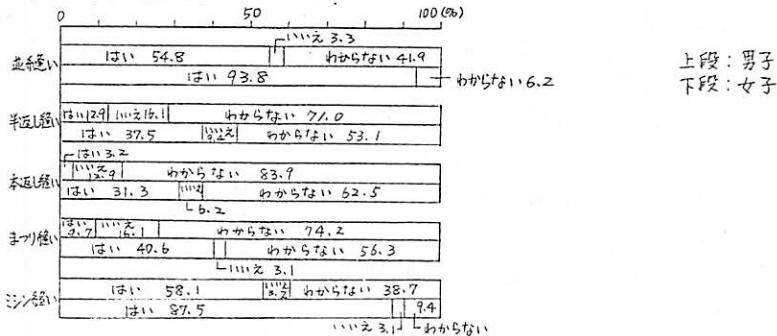 0 50 100(%)
いいえ 3.3
並縫い はい 54.8 わからない 41.9
はい 93.8 わからない 6.2
上段：男子
下段：女子
半返し縫い はい12.9 いいえ16.1 わからない 71.0
はい 37.5 いいえ 9.4 わからない 53.1
はい 3.2
本返し縫い いいえ 12.9 わからない 83.9
はい 31.3 いいえ わからない 62.5
6.2
まつり縫い はい 9.7 いいえ 16.1 わからない 74.2
はい 40.6 わからない 56.3
いいえ 3.1
ミシン縫い はい 58.1 いいえ わからない 38.7
はい 87.5 9.4
いいえ 3.1 わからない